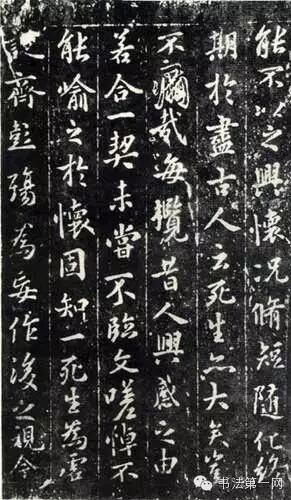 能不以之興懷況脩短隨化終
期於盡古人云死生亦大矣豈
不痛哉每攬昔人興感之由
若合一契未嘗不臨文嗟悼不
能喻之於懷固知一死生為虛
誕齊彭殤為妄作後之視今
书法第一网